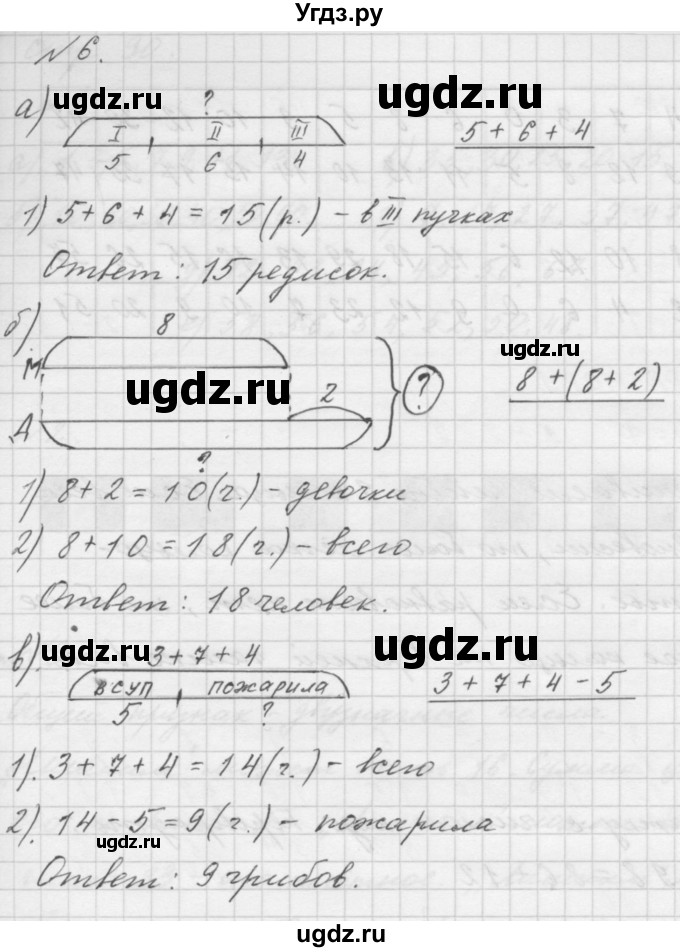 ©Ugdz.ru
№6.
а)
?
I II III
5 6 4
5 + 6 + 4
1) 5 + 6 + 4 = 15 (р.) - в III пучках
Ответ: 15 редисок.
б)
8
М
Д
2
?
?
8 + (8 + 2)
1) 8 + 2 = 10 (г.) - девочки
2) 8 + 10 = 18 (г.) - всего
Ответ: 18 человек.
в).
3 + 7 + 4
в суп пожарила
5 ?
3 + 7 + 4 - 5
1). 3 + 7 + 4 = 14 (г.) - всего
2). 14 - 5 = 9 (г.) - пожарила
Ответ: 9 грибов.
ugdz.ru
ugdz.ru
ugdz.ru
ugdz.ru
ugdz.ru
ugdz.ru
ugdz.ru
ugdz.ru